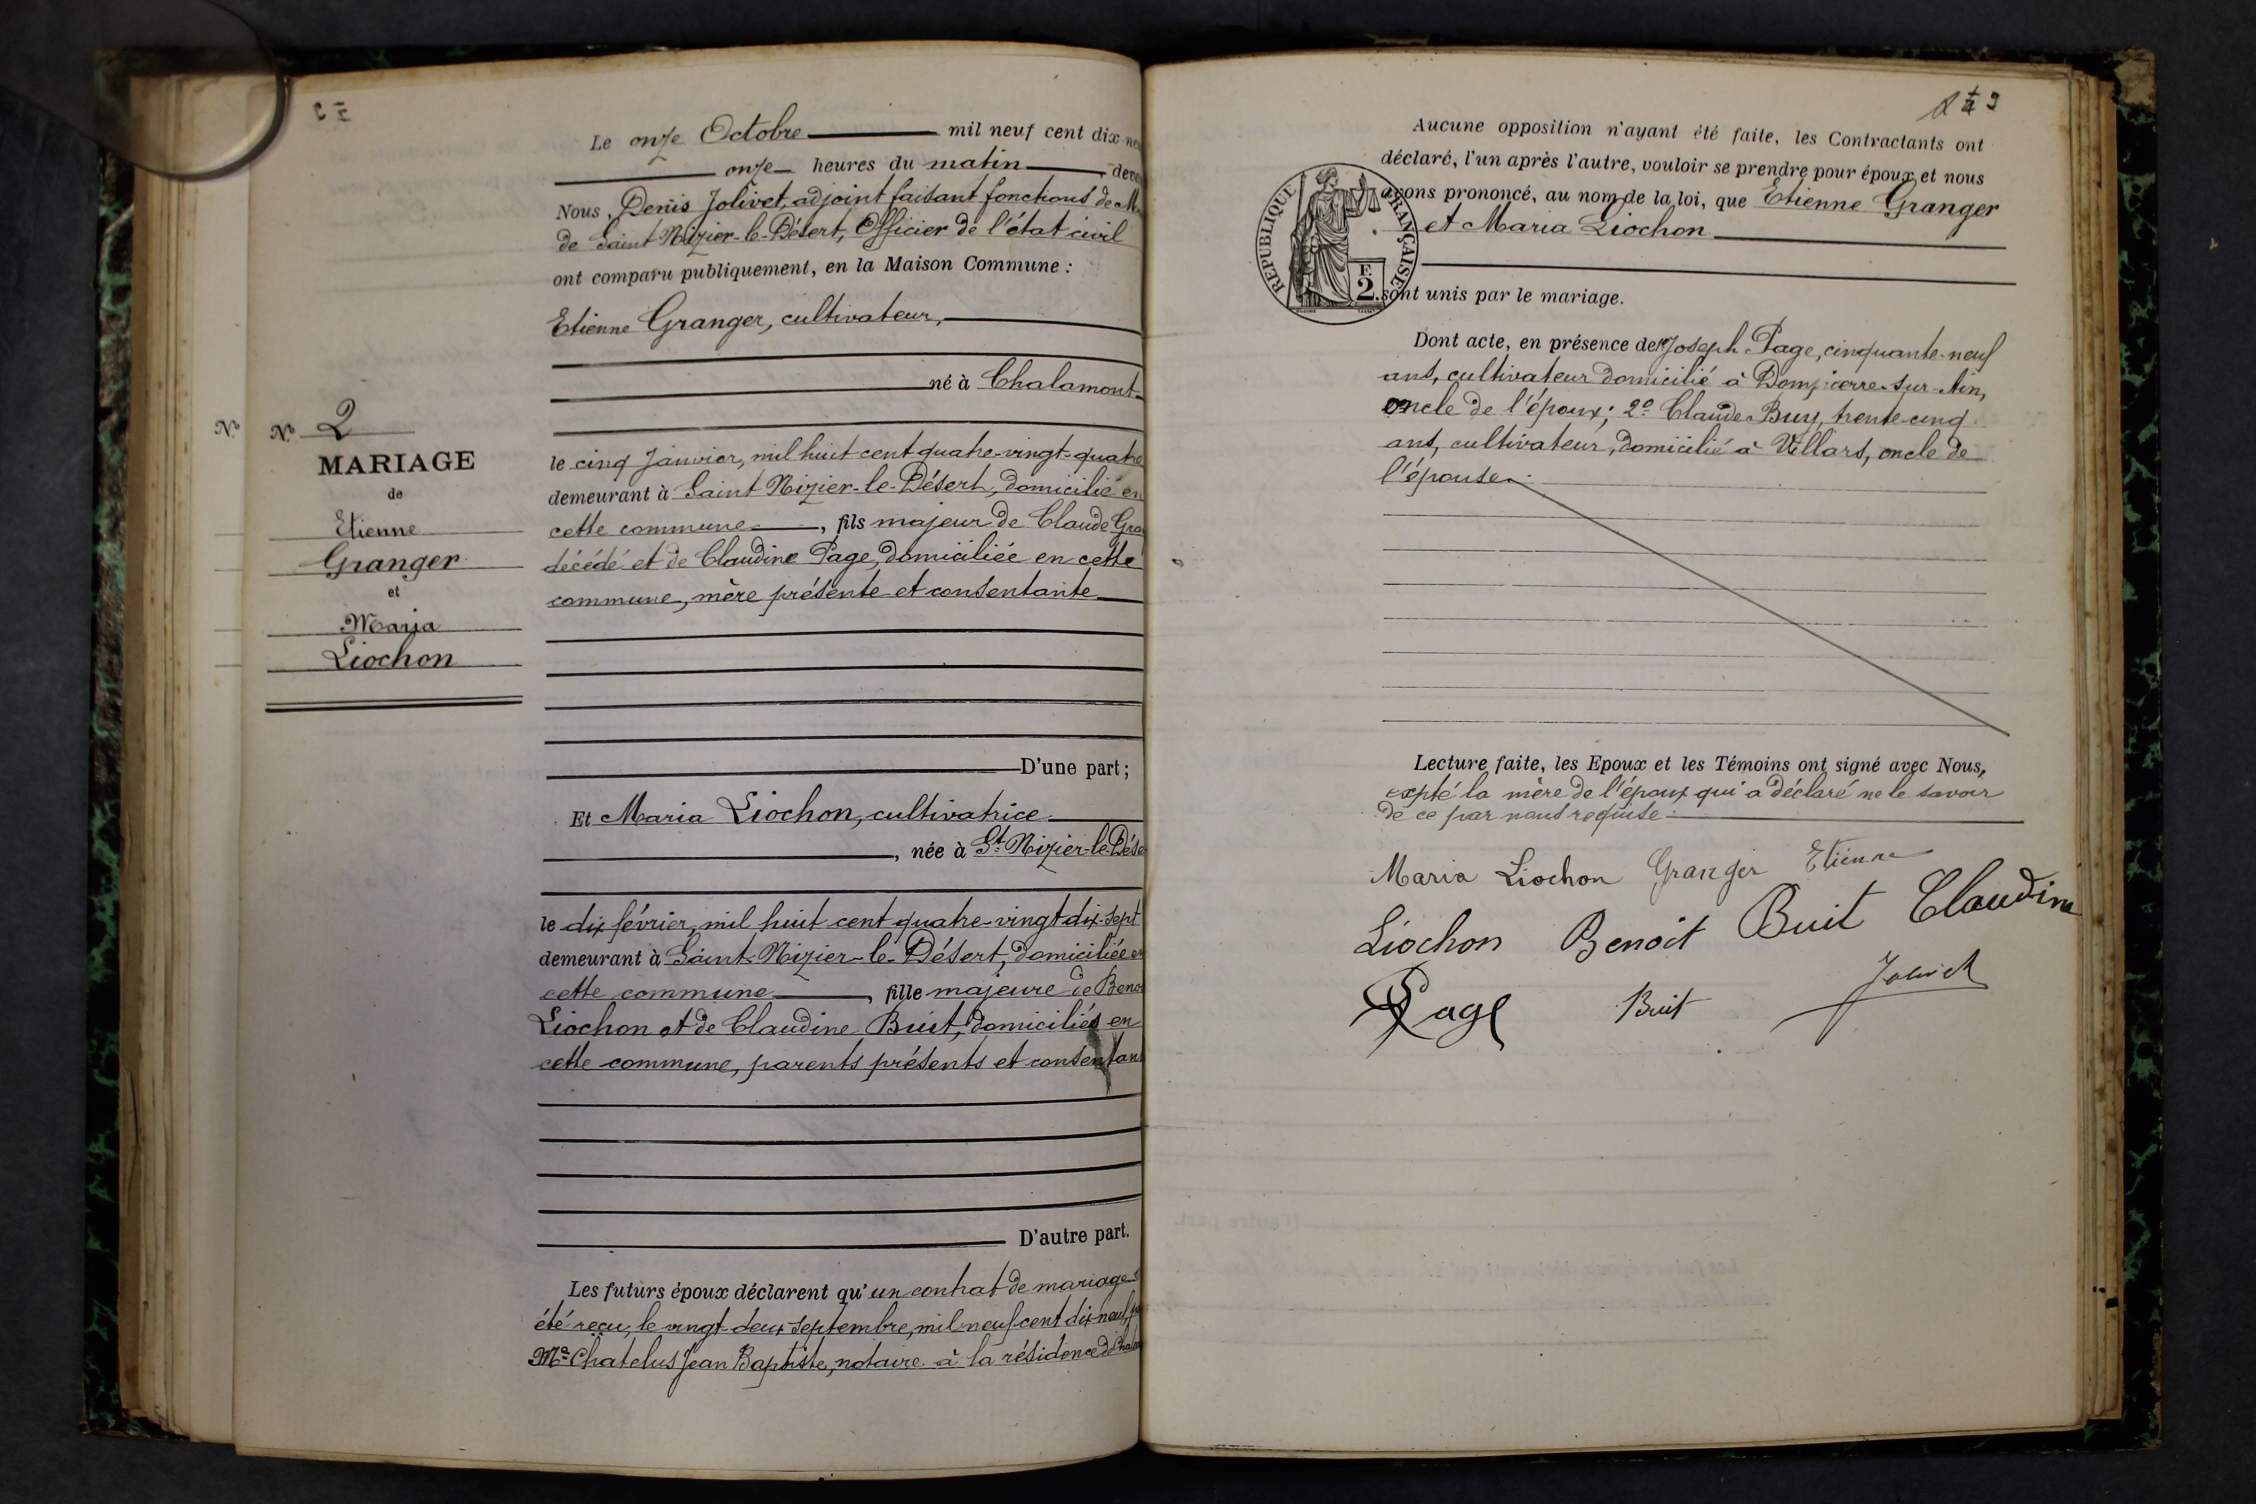 Le onze Octobre mil neuf cent dix-ne
onze heures du matin, deva
Nous, Denis Jolivet, adjoint faisant fonctions de M
de Saint Nizier-le-Désert, Officier de l'état civil
ont comparu publiquement, en la Maison Commune :
Etienne Granger, cultivateur,
né à Chalamont
le cinq Janvier, mil huit cent quatre-vingt-quatre
demeurant à Saint Nizier-le-Désert, domicilié en
cette commune, fils majeur de Claude Gra
décédé et de Claudine Page, domiciliée en cette
commune, mère présente et consentante
D'une part ;
Et Maria Liochon, cultivatrice
, née à St Nizier-le-Dése
le dix février, mil huit cent quatre-vingt-dix-sept
demeurant à Saint-Nizier-le-Désert, domiciliée en
cette commune, fille majeure de Beno
Liochon et de Claudine Buit, domiciliés en
cette commune, parents présents et consentant
D'autre part.
Les futurs époux déclarent qu'un contrat de mariage
été reçu, le vingt-deux septembre, mil neuf cent dix-neuf,
Me Chatelus Jean Baptiste, notaire à la résidence de Chala
Nº
Nº 2
MARIAGE
de
Etienne
Granger
et
Maria
Liochon
Aucune opposition n'ayant été faite, les Contractants ont
déclaré, l'un après l'autre, vouloir se prendre pour époux et nous
avons prononcé, au nom de la loi, que Etienne Granger
et Maria Liochon
sont unis par le mariage.
RÉPUBLIQUE FRANÇAISE
F.
2.
Dont acte, en présence de 1º Joseph Page, cinquante-neuf
ans, cultivateur domicilié à Dompierre-sur-Ain,
oncle de l'époux ; 2º Claude Buy, trente-cinq
ans, cultivateur, domicilié à Villars, oncle de
l'épouse.
Lecture faite, les Epoux et les Témoins ont signé avec Nous,
expté la mère de l'époux qui a déclaré ne le savoir
de ce par nous requise.
Maria Liochon Granger Etienne
Liochon Benoit Buit Claudine
Page Buit Jolivet